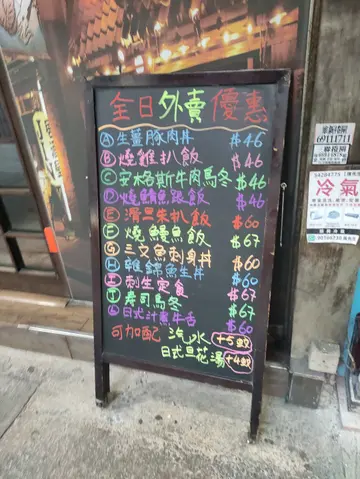 全日外賣優惠
Ⓐ生薑豚肉丼 $46
Ⓑ燒雞扒飯 $46
Ⓒ安格斯牛肉烏冬 $46
Ⓓ燒鯖魚跟飯 $46
Ⓔ海黑朱扒飯 $60
Ⓕ燒鰻魚飯 $67
Ⓖ三文魚刺身丼 $60
Ⓗ雜錦魚生丼 $60
Ⓘ刺生定食 $67
Ⓙ壽司烏冬 $67
日式汁燒牛舌 $60
可加配 汽水 +5蚊
日式豆花湯 +4蚊
69111711
54294775
冷氣